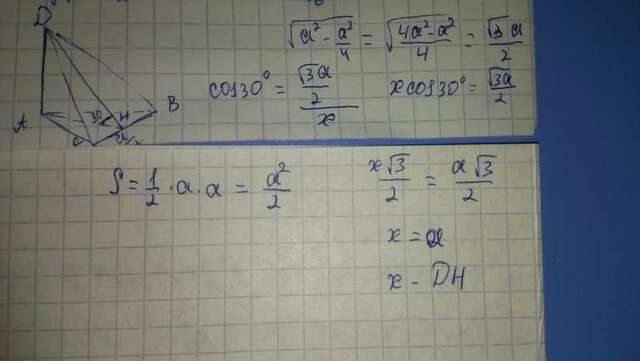 D
A
B
C
H
30
a/2
√(a² - a²/4) = √((4a² - a²)/4) = √3 a/2
cos30° = (√3a/2)/x
x cos30° = √3a/2
S = 1/2 · a · a = a²/2
x√3/2 = a√3/2
x = a
x - DH